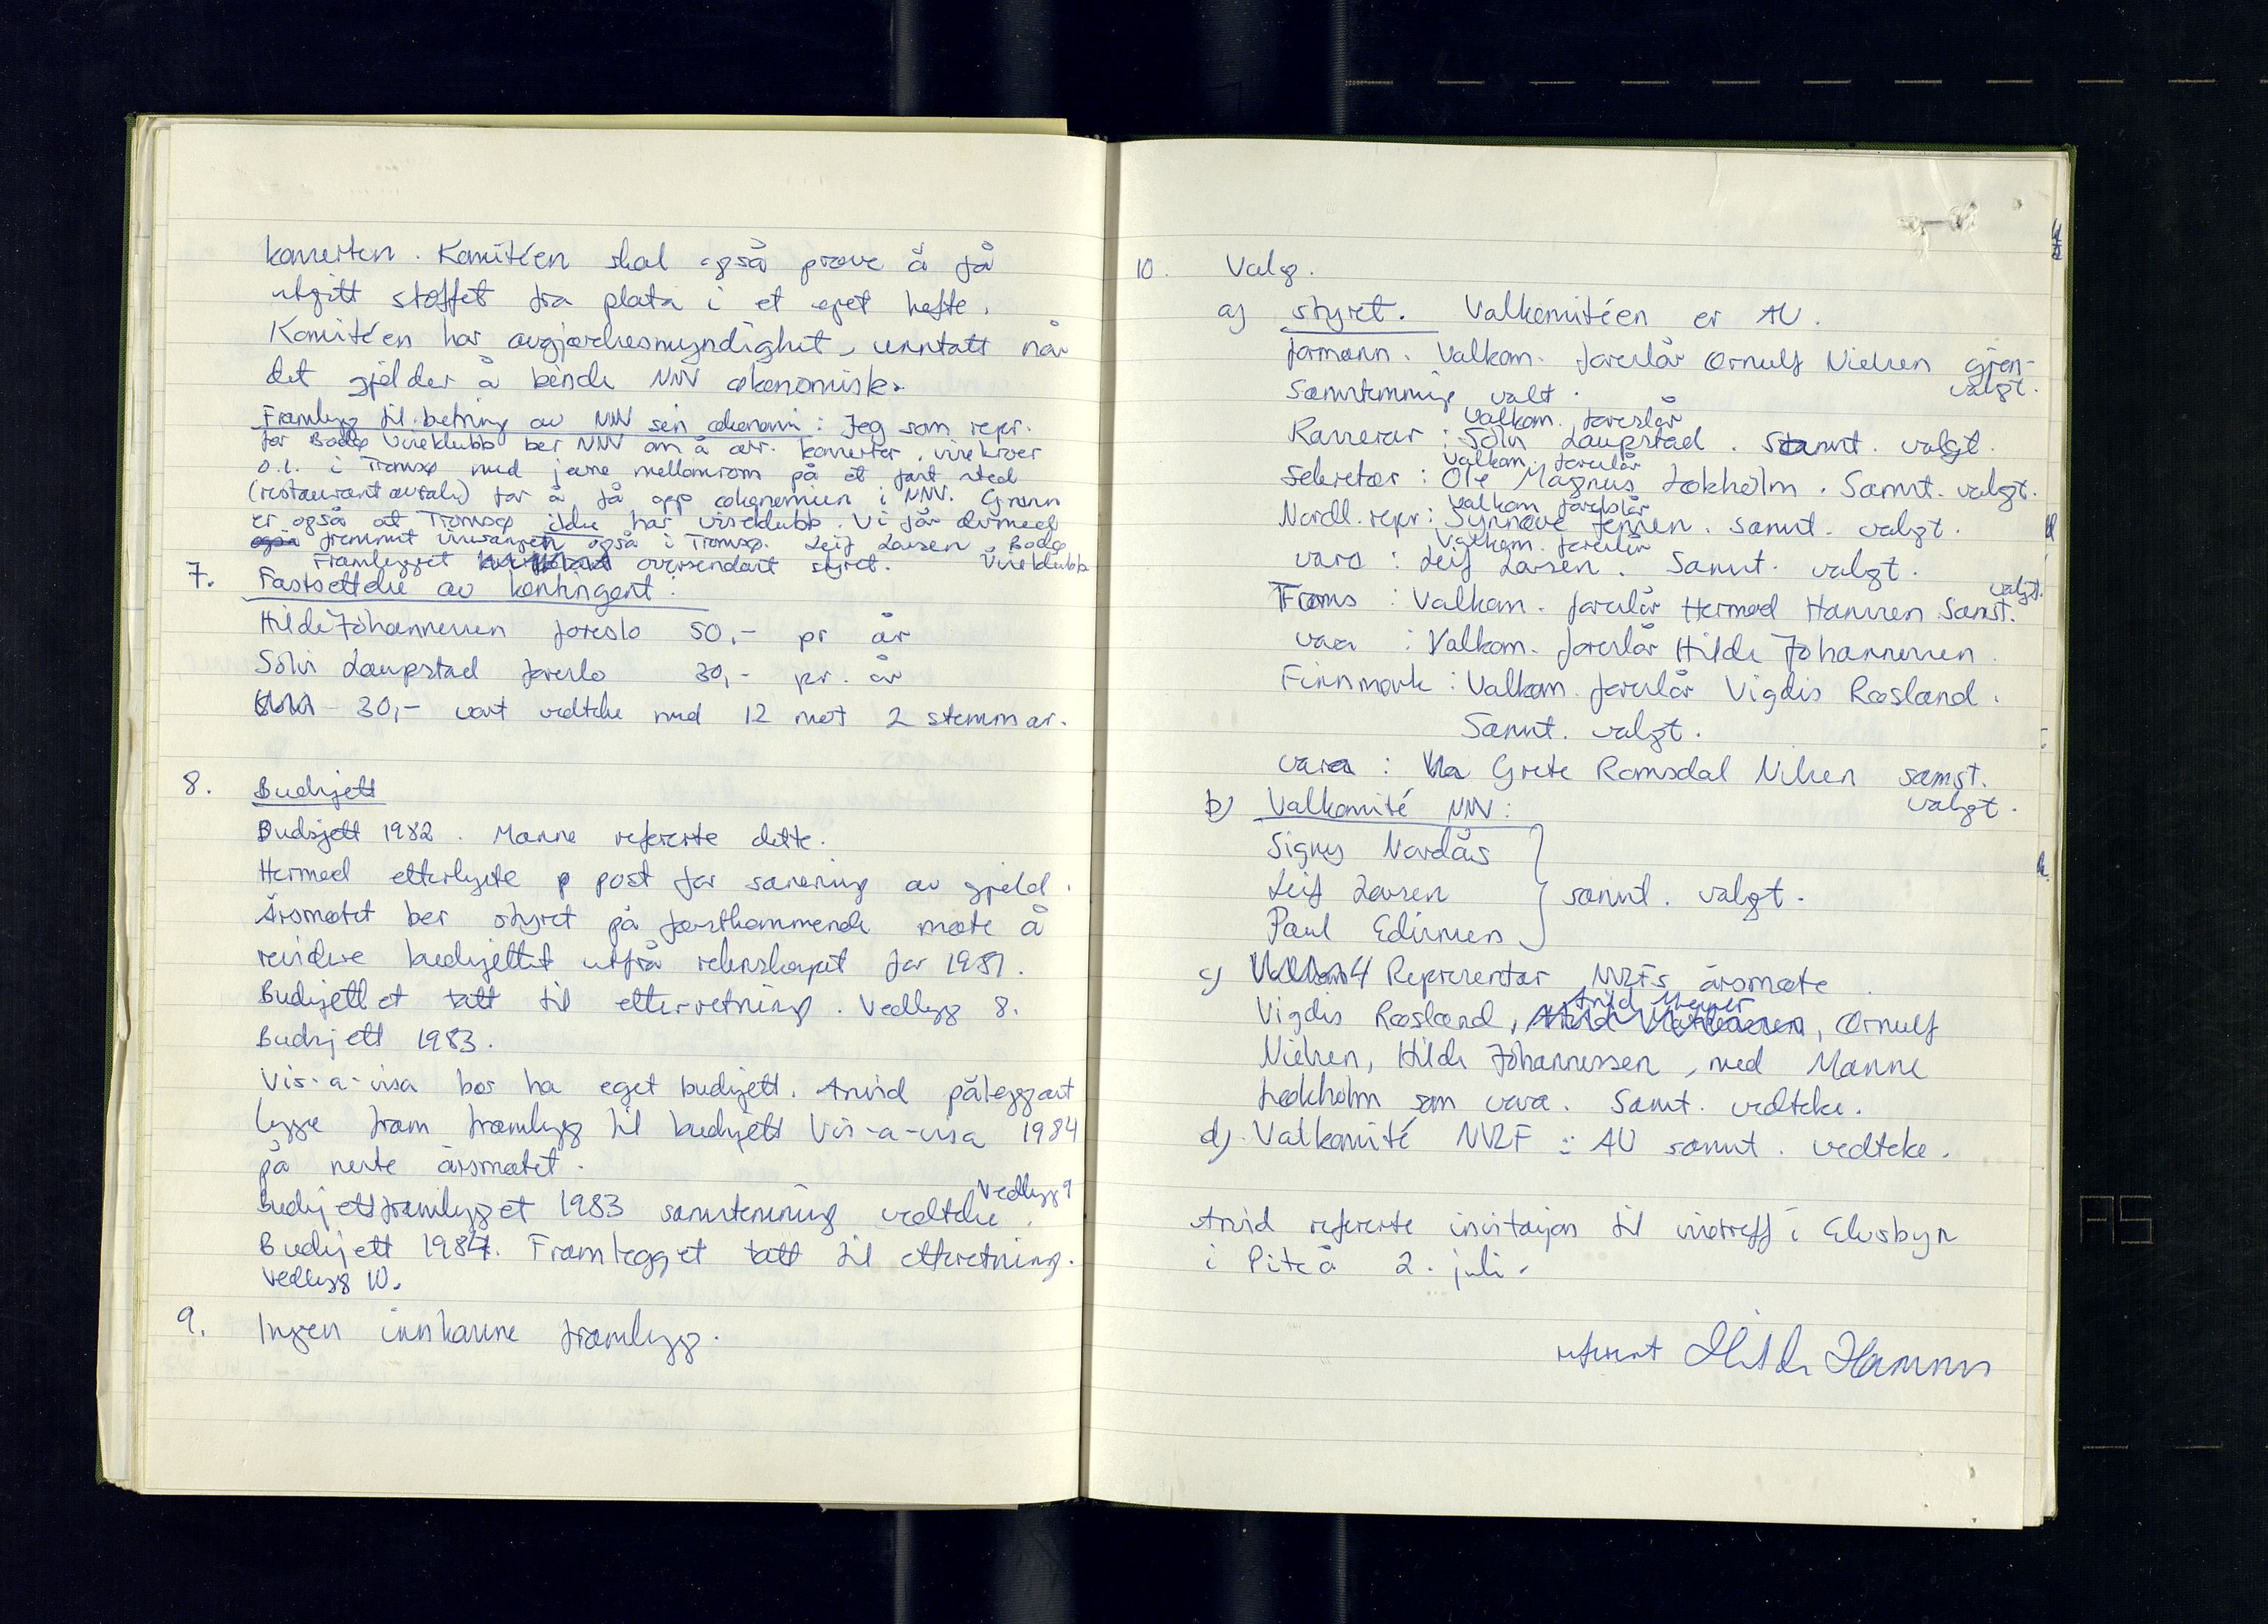 konserten. Komitéen skal også prøve å få
utgitt stoffet fra plata i et eget hefte.
Komitéen har avgjørelsesmyndighet, unntatt når
det gjelder å binde NNV økonomisk.
Framlegg til betring av NNV sin økonomi: Jeg som repr.
for Bodø Viseklubb ber NNV om å arr. konserter, visekroer
o.l. i Tromsø med jevne mellomrom på et fast sted
(restaurantavtale) for å få opp økonomien i NNV. Grunnen
er også at Tromsø ikke har viseklubb. Vi får dermed
også fremmet visesangen også i Tromsø. Leif Larsen Bodø
Viseklubb
Framlegget oversendart styret.
7. Fastsettelse av kontingent:
Hilde Johannessen foreslo 50,- pr år
Sølvi Laupstad foreslo 30,- pr. år
30,- vart vedteke med 12 mot 2 stemmar.
8. Budsjett
Budsjett 1982. Manne refererte dette.
Hermod etterlyste p post for sanering av gjeld.
Årsmøtet ber styret på førstkommende møte å
revidere budsjettet utfrå rekneskapet for 1981.
Budsjettet tatt til etterretning. Vedlegg 8.
Budsjett 1983.
Vis-a-visa bør ha eget budsjett. Arvid påleggart
legge fram framlegg til budsjett Vis-a-visa 1984
på neste årsmøtet.
Budsjettframlegget 1983 samstemmig vedteke. Vedlegg 9
Budsjett 1984. Framlegget tatt til etteretning.
Vedlegg 10.
9. Ingen innkomne framlegg.
10. Valg.
a) styret. Valkomitéen er AU.
formann. Valkom. foreslår Ørnulf Nielsen gjen-
valgt.
Samstemmig valt.
Valkom. foreslår
Kasserar: Sølvi Laupstad. Samst. valgt.
Valkom. foreslår
Sekretær: Ole Magnus Løkholm. Samst. valgt.
Valkom foreslår
Nordl. repr: Synnøve Jensen. samst. valgt.
Valkom. foreslår
vara: Leif Larsen. Samst. valgt.
Troms: Valkom. foreslår Hermod Hansen Samst. valgt.
vara: Valkom. foreslår Hilde Johannessen.
Finnmark: Valkom. foreslår Vigdis Røsland.
Samst. valgt.
vara: Grete Ramsdal Nilsen samst.
valgt.
b) Valkomité NNV:
Signy Nordås
Leif Larsen
samst. valgt.
Paul Edinsen
c) 4 Representar NVLFs årsmøte.
Vigdis Røsland, Arvid, Ørnulf
Nielsen, Hilde Johannessen, med Manne
Løkholm som vara. Samst. vedteke.
d). Valkomité NVLF: AU samst. vedteke.
Arvid refererte invitasjon til visetreff i Elvsbyn
i Piteå 2. juli.
referent Hilde